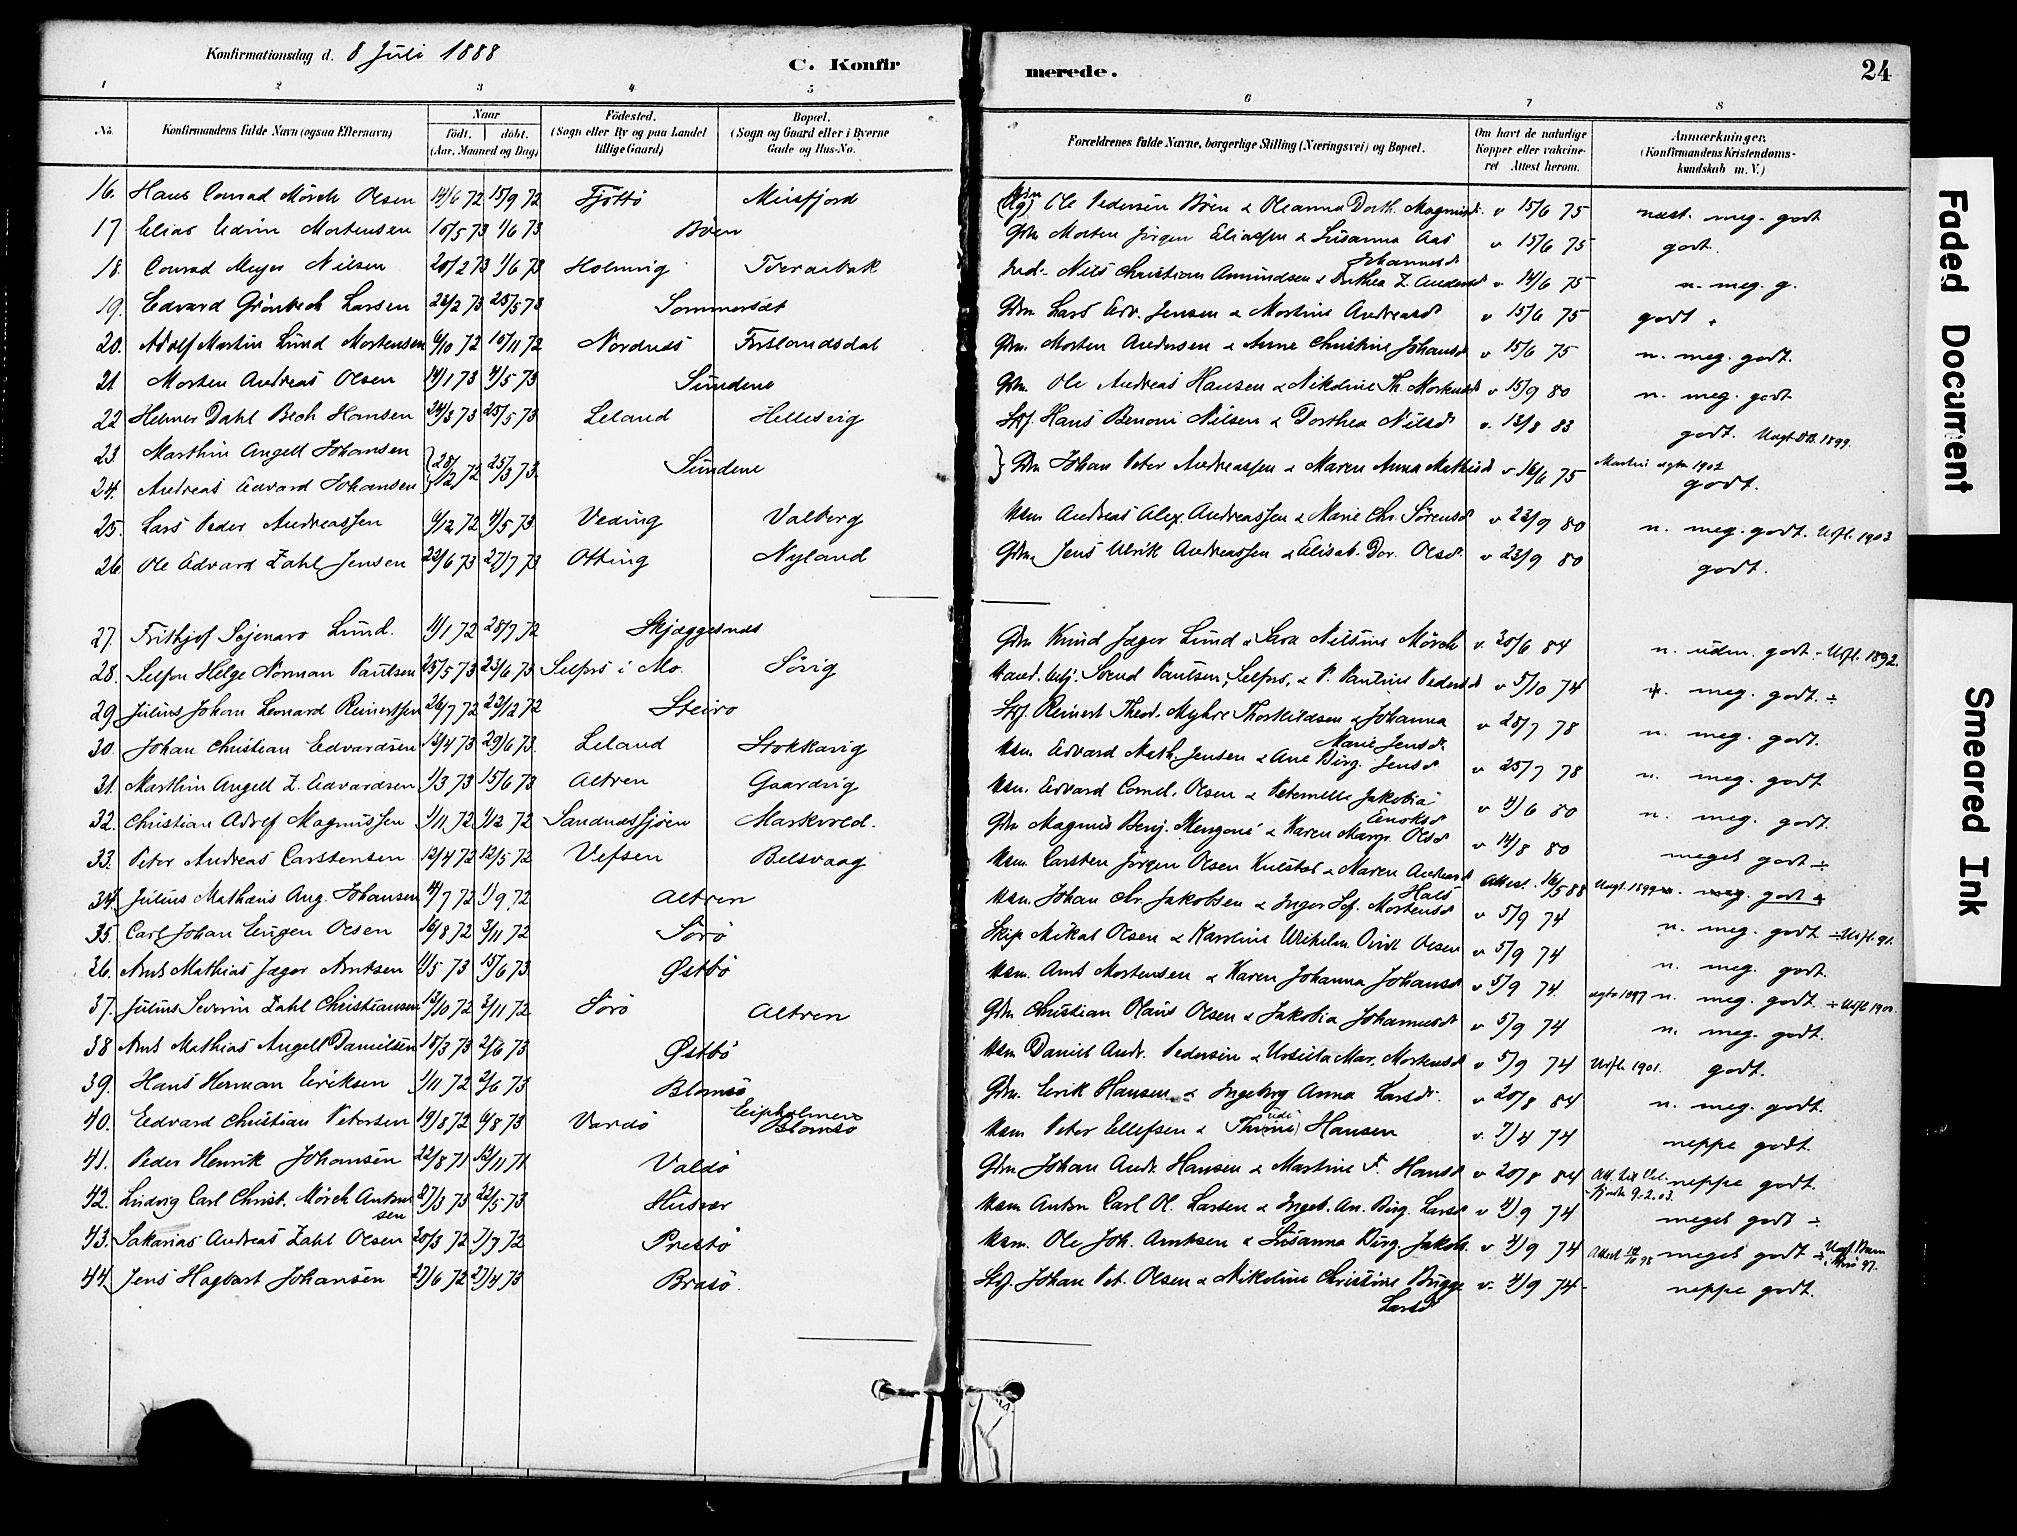 Konfirmationsdag d. 8 Juli 1888
C. Konfirmerede.
24
1 2 3 4 5 6 7 8
No. Konfirmandens fulde Navn (ogsaa Efternavn) Naar født. døbt. (Aar, Maaned og Dag) Fødested. (Sogn eller By og paa Landet tillige Gaard) Bopæl. (Sogn og Gaard eller i Byerne Gade og Hus-No. Forældrenes fulde Navne, borgerlige Stilling (Næringsvei) og Bopæl. Om havt de naturlige Kopper eller vakcineret Attest herom. Anmærkninger. (Konfirmandens Kristendomskundskab m. V.)
16. Hans Conrad Mörch Olsen 14/6 72 15/9 72 Tjöttö Meisfjord Ole Pedersen Böen & Oleanna Dorth. Magnusd. v 15/6 75 næst. meg. godt
17 Elias Edvin Mortensen 10/5 73 1/6 73 Böen Gdm Morten Jörgen Eliassen & Susanna Aas v 15/6 75 godt.
18. Conrad Meyer Nilsen 20/2 73 1/6 73 Holmvig Tveraabak Ind. Nils Christian Amundsen & Dorthea Z. Andersd Johannesd v 14/6 75 n. meg. g.
19. Edvard Grönbech Larsen 22/2 73 25/5 73 Sommersæt Gdm Lars Edv. Jensen & Martine Andreasd v 15/6 75 godt
20. Adolf Martin Lund Mortensen 6/10 72 10/11 72 Nordnæs Forslandsdal Gdm. Morten Andersen & Anne Christine Johansd v 15/6 75 n. meg. godt.
21 Morten Andreas Olsen 14/1 73 4/5 73 Sundene Gdm. Ole Andreas Hansen & Nikoline Th. Mortensd v 15/9 80 n. meg. godt
22 Helmer Dahl Bech Hansen 24/3 73 25/5 73 Leland Hellesvig Stf. Hans Benoni Nilsen & Dorthea Nilsd v. 13/8 83 godt. Uagt DB. 1899.
23. Marthin Angell Johansen } 28/12 72 25/3 73. Sundene } Gdm Johan Peter Andreassen & Maren Anna Mathisd v 16/6 75 Martin agtv 1902
24. Andreas Edvard Johansen godt.
25. Lars Peder Andreassen 6/12 72 4/5 73 Veding Valberg Hsm Andreas Alex. Andreassen & Marie Chr. Sörensd v 23/9 80 n. meg. godt. Utfl. 1903
26. Ole Edvard Zahl Jensen 22/6 73 27/7 73 Otting Nyland Gdm Jens Ulrik Andreassen & Elisab. Dor. Olsd. v 23/9 80 godt.
27. Frithjof Sejenaro Lund. 11/1 72 28/7 72 Skjæggesnæs Gdm Knud Jæger Lund & Sara Nilsine Mörch v. 20/6 84 n. udm. godt. Utfl. 1892.
28. Selfon Helge Norman Paulsen 25/5 73 23/6 73 Selfors i Mo. Sövig Svend Paulsen, Selfors, & P. Pauline Pedersd v 5/10 74 n. meg. godt. ÷
29 Julius Johan Leonard Reinertsen 26/7 72 22/12 72 Steiro Stf. Reinert Theod. Myhre Thorkildsen & Johanna Marie Jensd v 28/7 78 n. meg. godt.
30. Johan Christian Edvardsen 13/4 73 29/6 73 Leland Stokkavig Hsm. Edvard Math. Jensen & Ane Birg. Jensd v 25/7 78 n. meg. godt
31. Marthin Angell Z. Edvardsen 1/3 73 15/6 73 Altren Gaardvig Hsm. Edvard Cornel. Olsen & Peternelle Jakobia Enoksd v 4/6 80 n. meg. godt.
32. Christian Adolf Magnussen 1/11 72 1/12 72 Sandnæssjöen Markvold. Gdm Magnus Benj. Mengoné & Karen Margr. Olsd v 14/8 80 meget godt ÷
33. Peter Andreas Carstensen 12/4 72 12/5 72 Vefsen Belsvaag Hsm. Carsten Jörgen Olsen Kulstad & Maren Andersd Hals Attest. 16/5 88 Uagt. 1899 n. meg. godt ÷
34. Julius Mathæus Aug. Johansen 4/7 72 1/9 72 Altren Hsm. Johan Chr. Jakobsen & Inger Sof. Mortensd v 5/9 74 n. meg. godt ÷ Utfl. 91.
35. Carl Johan Eugen Olsen 16/8 72 3/11 72 Sörö Skip Mikal Olsen & Karoline Wilhelm. Qvidt Olsen v 5/9 74 n. meg. godt.
36. Arnt Mathias Jæger Arntsen 11/5 73 15/6 73. Østbö Hsm. Arnt Mortensen & Karen Johanna Johansd v 5/9 74. agtv 1897 n. meg. godt. ÷ Utfl 1900.
37. Julius Severin Zahl Christiansen 13/10 72 3/11 72 Sörö Altren Gdm Christian Olaus Olsen & Jakobia Johannesd v 5/9 74 n. meg. godt.
38 Arnt Mathias Angell Danielsen 10/3 73 2/6 73 Østbö Hsm Daniel Andr. Pedersen & Ursilla Mar. Mortensd v 5/9 74 Utfl. 1901. godt.
39. Hans Herman Eriksen 1/11 72 2/6 73 Blomsö Gdm. Erik Hansen & Ingeborg Anna Larsd. v 20/8 84 n. meg. godt.
40. Edvard Christian Petersen 19/8 72 6/8 73 Vardö Blomsö Hsm Peter Ellefsen & Hansen v. 7/4 74 neppe godt.
41. Peder Henrik Johansen 22/8 71 12/11 71 Valdö Gdm Johan Andr. Hansen & Martine F. Hansd v 20/8 84 neppe godt.
42. Ludvig Carl Christ. Mörch Antonsen 27/3 73 22/5 73 Husvær Hsm Anton Carl Ol. Larsen & Ingeb. An. Birg. Larsd v 4/9 74 9-2. 03. meget godt ÷
43. Sakarias Andreas Zahl Olsen 20/3 72 7/7 72 Prestö Hsm. Ole Joh. Arntsen & Susanna Birg. Jakobs. v 4/9 74 Attest meget godt ÷
44. Jens Hagbart Johansen 23/6 72 27/4 73 Brasö. Stf. Johan Pet. Olsen & Nikoline Christine Brygge Larsd v. 4/9 74 neppe godt.
Faded Document
Smeared Ink